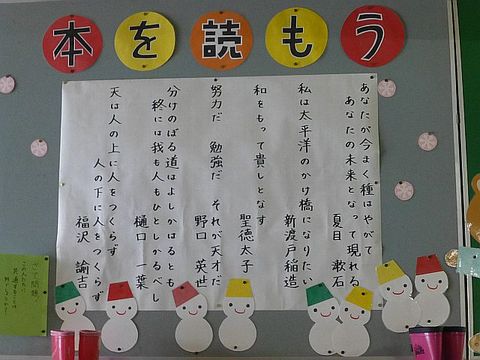 本を読もう
あなたが今まく種はやがて
あなたの未来となって現れる
夏目 漱石
私は太平洋のかけ橋になりたい
新渡戸稲造
和をもって貴しとなす
聖徳太子
努力だ 勉強だ それが天才だ
野口 英世
分けのぼる道はよしかはるとも
終には我も人もひとしかるべし
樋口 一葉
天は人の上に人をつくらず
人の下に人をつくらず
福沢 諭吉